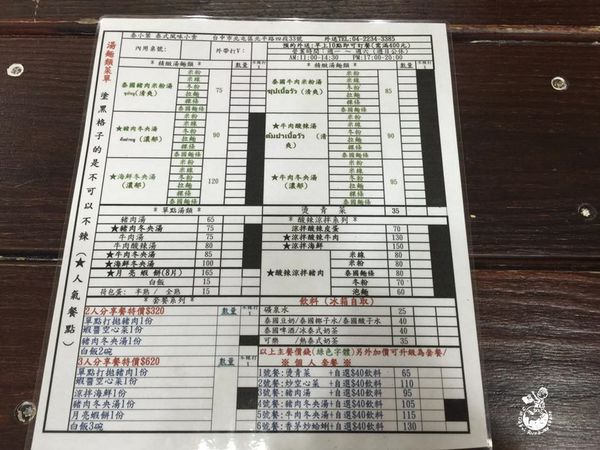 泰小葉 泰式風味小食 台中市北屯區北平路四段33號 外送TEL:04-2234-3385
內用桌號: 外帶打V: 預約外送:早上10點即可訂餐(需滿400元)
營業時間:週一 ～ 週六(週日公休)
AM:11:00-14:30 PM:17:00-20:00
湯麵類菜單 塗黑格子的是不可以不辣 (★人氣餐點)
* 精緻湯麵類 * 數量 不辣打V * 精緻湯麵類 * 數量 不辣打V
泰國豬肉米粉湯 (清爽) 米粉 冬粉 拉麵 粿條 泰國麵條 75
泰國牛肉米粉湯 ซุปเนื้อวัว (清爽) 米粉 冬粉 拉麵 粿條 泰國麵條 85
★豬肉冬央湯 (濃郁) 米粉 冬粉 拉麵 粿條 泰國麵條 90
★牛肉酸辣湯 ต้มยำเนื้อวัว (清爽) 米粉 冬粉 拉麵 粿條 泰國麵條 90
★海鮮冬央湯 (濃郁) 米粉 冬粉 拉麵 粿條 泰國麵條 120
★牛肉冬央湯 (濃郁) 米粉 冬粉 拉麵 粿條 泰國麵條 95
* 單點湯類 *
豬肉湯 65
★豬肉冬央湯 75
牛肉湯 75
牛肉酸辣湯 80
★牛肉冬央湯 85
★海鮮冬央湯 100
★月亮蝦餅(8片) 165
白飯 15
荷包蛋: 半熟 / 全熟 15
燙青菜 35
* 酸辣涼拌系列 *
★涼拌酸辣皮蛋 70
★涼拌酸辣牛肉 130
★涼拌海鮮 150
★酸辣涼拌豬肉
米粉 80
泰國麵條 80
冬粉 70
泡麵 60
* 套餐系列 * 數量 不辣打V
2人分享餐特價$320
單點打拋豬肉1份
蝦醬空心菜1份
豬肉冬央湯1份
白飯2碗
3人分享餐特價$620
單點打拋豬肉1份
蝦醬空心菜1份
涼拌海鮮1份
豬肉冬央湯1份
月亮蝦餅1份
白飯3碗
飲料 (冰箱自取)
礦泉水 20
泰國豆奶/泰國椰子水/泰國酸子水 40
泰國啤酒/冰泰式奶茶
可樂 /熱泰式奶茶 35
以上主餐價錢(綠色字體)另外加價可升級為套餐/
※ 個人套餐 ※
1號餐:燙青菜 +自選$40飲料 65
2號餐:炒空心菜 +自選$40飲料 110
3號餐:豬肉湯 +自選$40飲料 95
4號餐:豬肉冬央湯+自選$40飲料 105
5號餐:牛肉冬央湯+自選$40飲料 115
6號餐:香茅炒蛤蜊+自選$40飲料 130